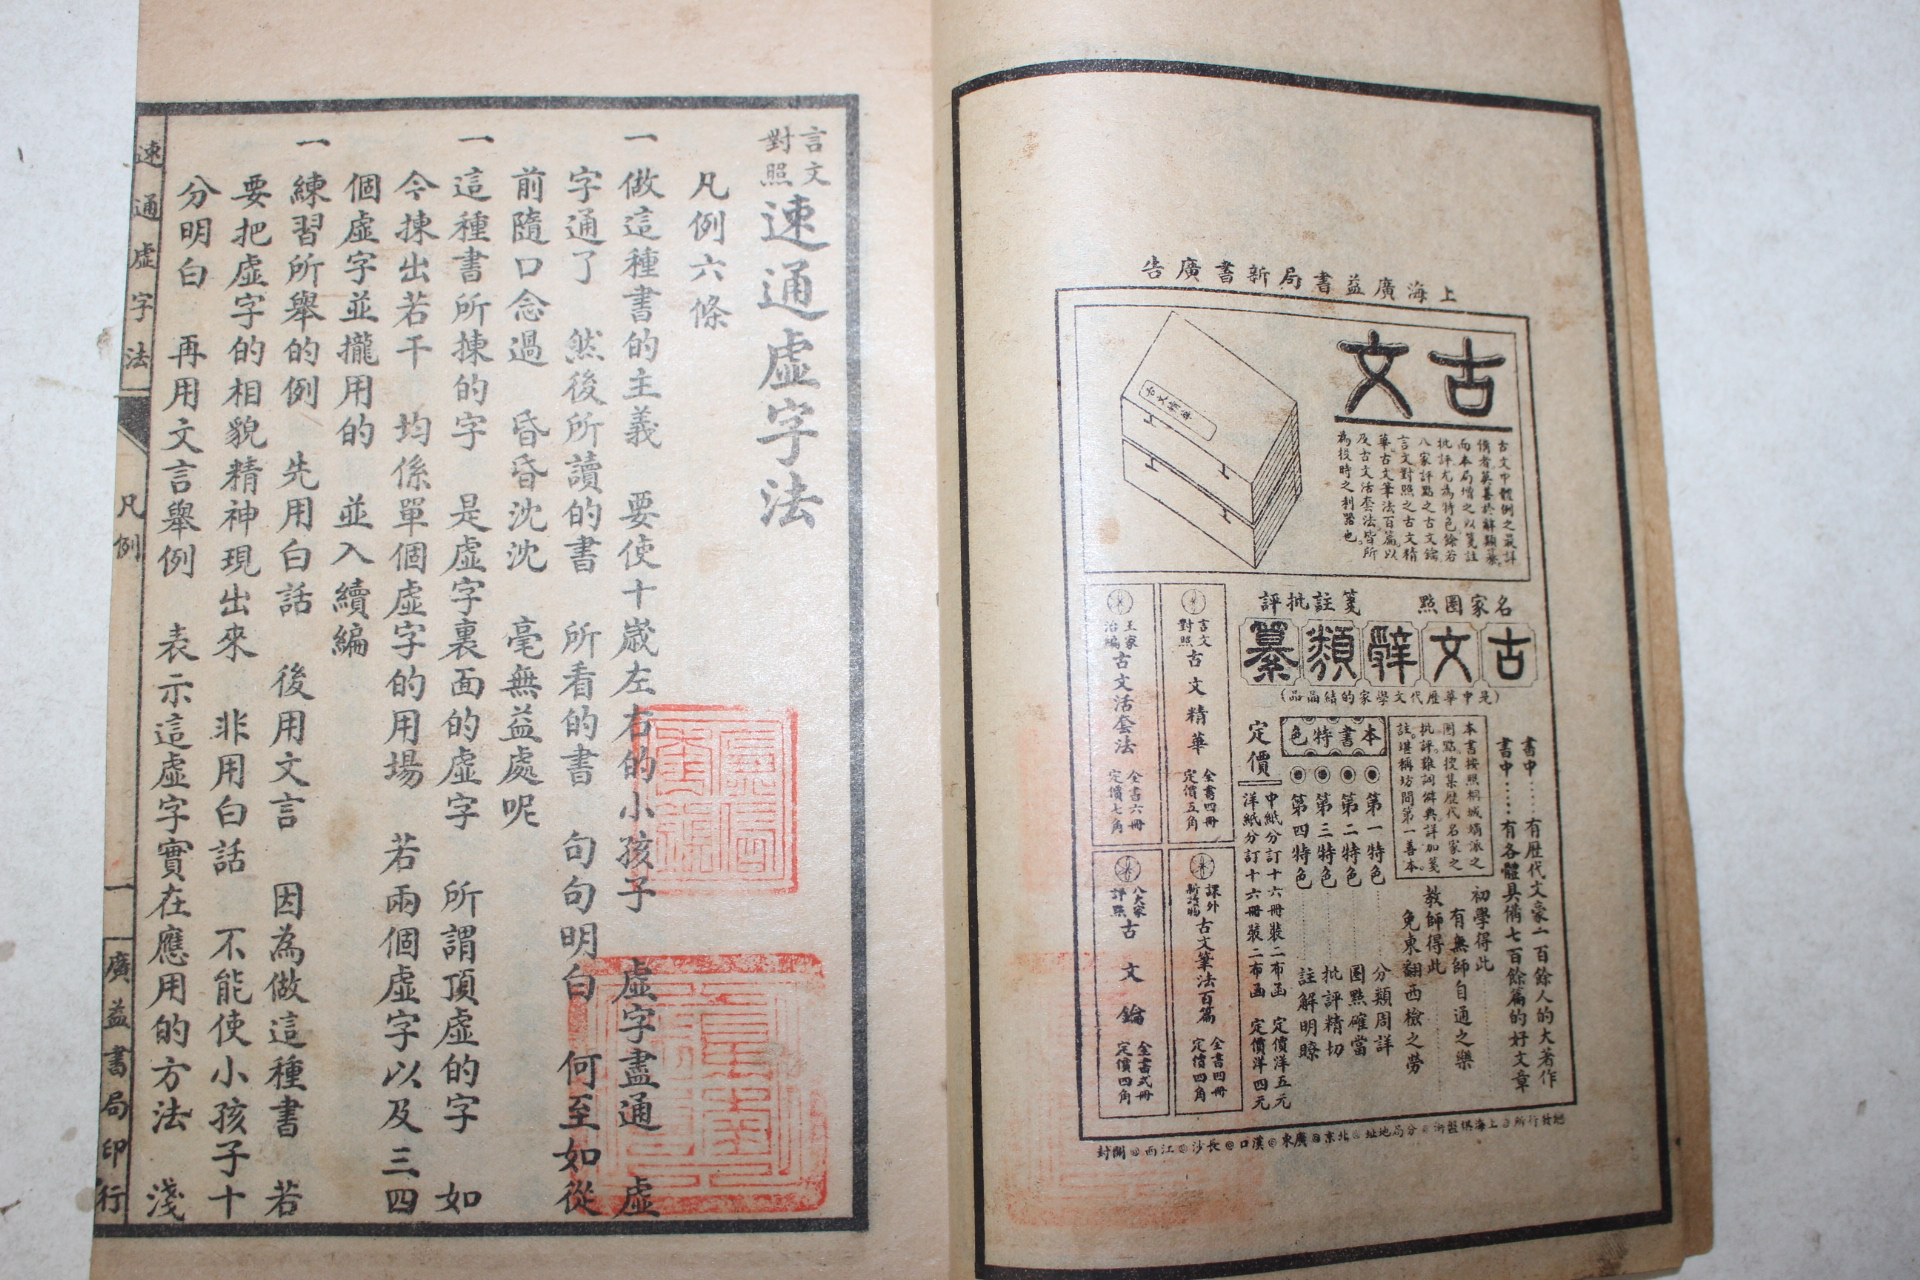 上海廣益書局新書廣告
古文
古文中體例之最詳
備者莫善於辭類纂。
而本局增之以箋註
批評尤為特色餘若
八家評點之古文鑰
言文對照之古文精
華古文筆法百篇以
及古文活套法皆所
為後時之利器也
古文精華
名家圈點
箋註批評
古文辭類纂
(是中華歷代文學家的結晶品)
書中……有歷代文豪一百餘人的大著作
書中……有各體具備七百餘篇的好文章
本書按照桐城嫡派之
圈點。搜集歷代名家之
批評。難詞僻典詳加箋
註。堪稱坊間第一善本。
初學得此……有無師自通之樂
教師得此……免東翻西檢之勞
本書特色
第一特色……分類周詳
第二特色……圈點確當
第三特色……批評精切
第四特色……註解明瞭
定價
中紙分訂十六冊裝二布函 定價洋五元
洋紙分訂十六冊裝二布函 定價洋四元
言文對照 古文精華 全書四冊 定價五角
課外 古文筆法百篇 全書四冊 定價四角
王家治編 古文活套法 全書六冊 定價七角
八大家評點 古文鑰 全書弍冊 定價四角
分局地址◎北京◎廣東◎漢口◎長沙◎江西◎開封
言文對照 速通虛字法
凡例六條
一 做這種書的主義 要使十歲左右的小孩子 虛字盡通 虛
字通了 然後所讀的書 所看的書 句句明白 何至如從
前隨口念過 昏昏沈沈 毫無益處呢
一 這種書所揀的字 是虛字裏面的虛字 所謂頂虛的字 如
今揀出若干 均係單個虛字的用場 若兩個虛字以及三四
個虛字並攏用的 並入續編
一 練習所舉的例 先用白話 後用文言 因為做這種書 若
要把虛字的相貌精神現出來 非用白話 不能使小孩子十
分明白 再用文言舉例 表示這虛字實在應用的方法 淺
速通虛字法 凡例 一 廣益書局印行